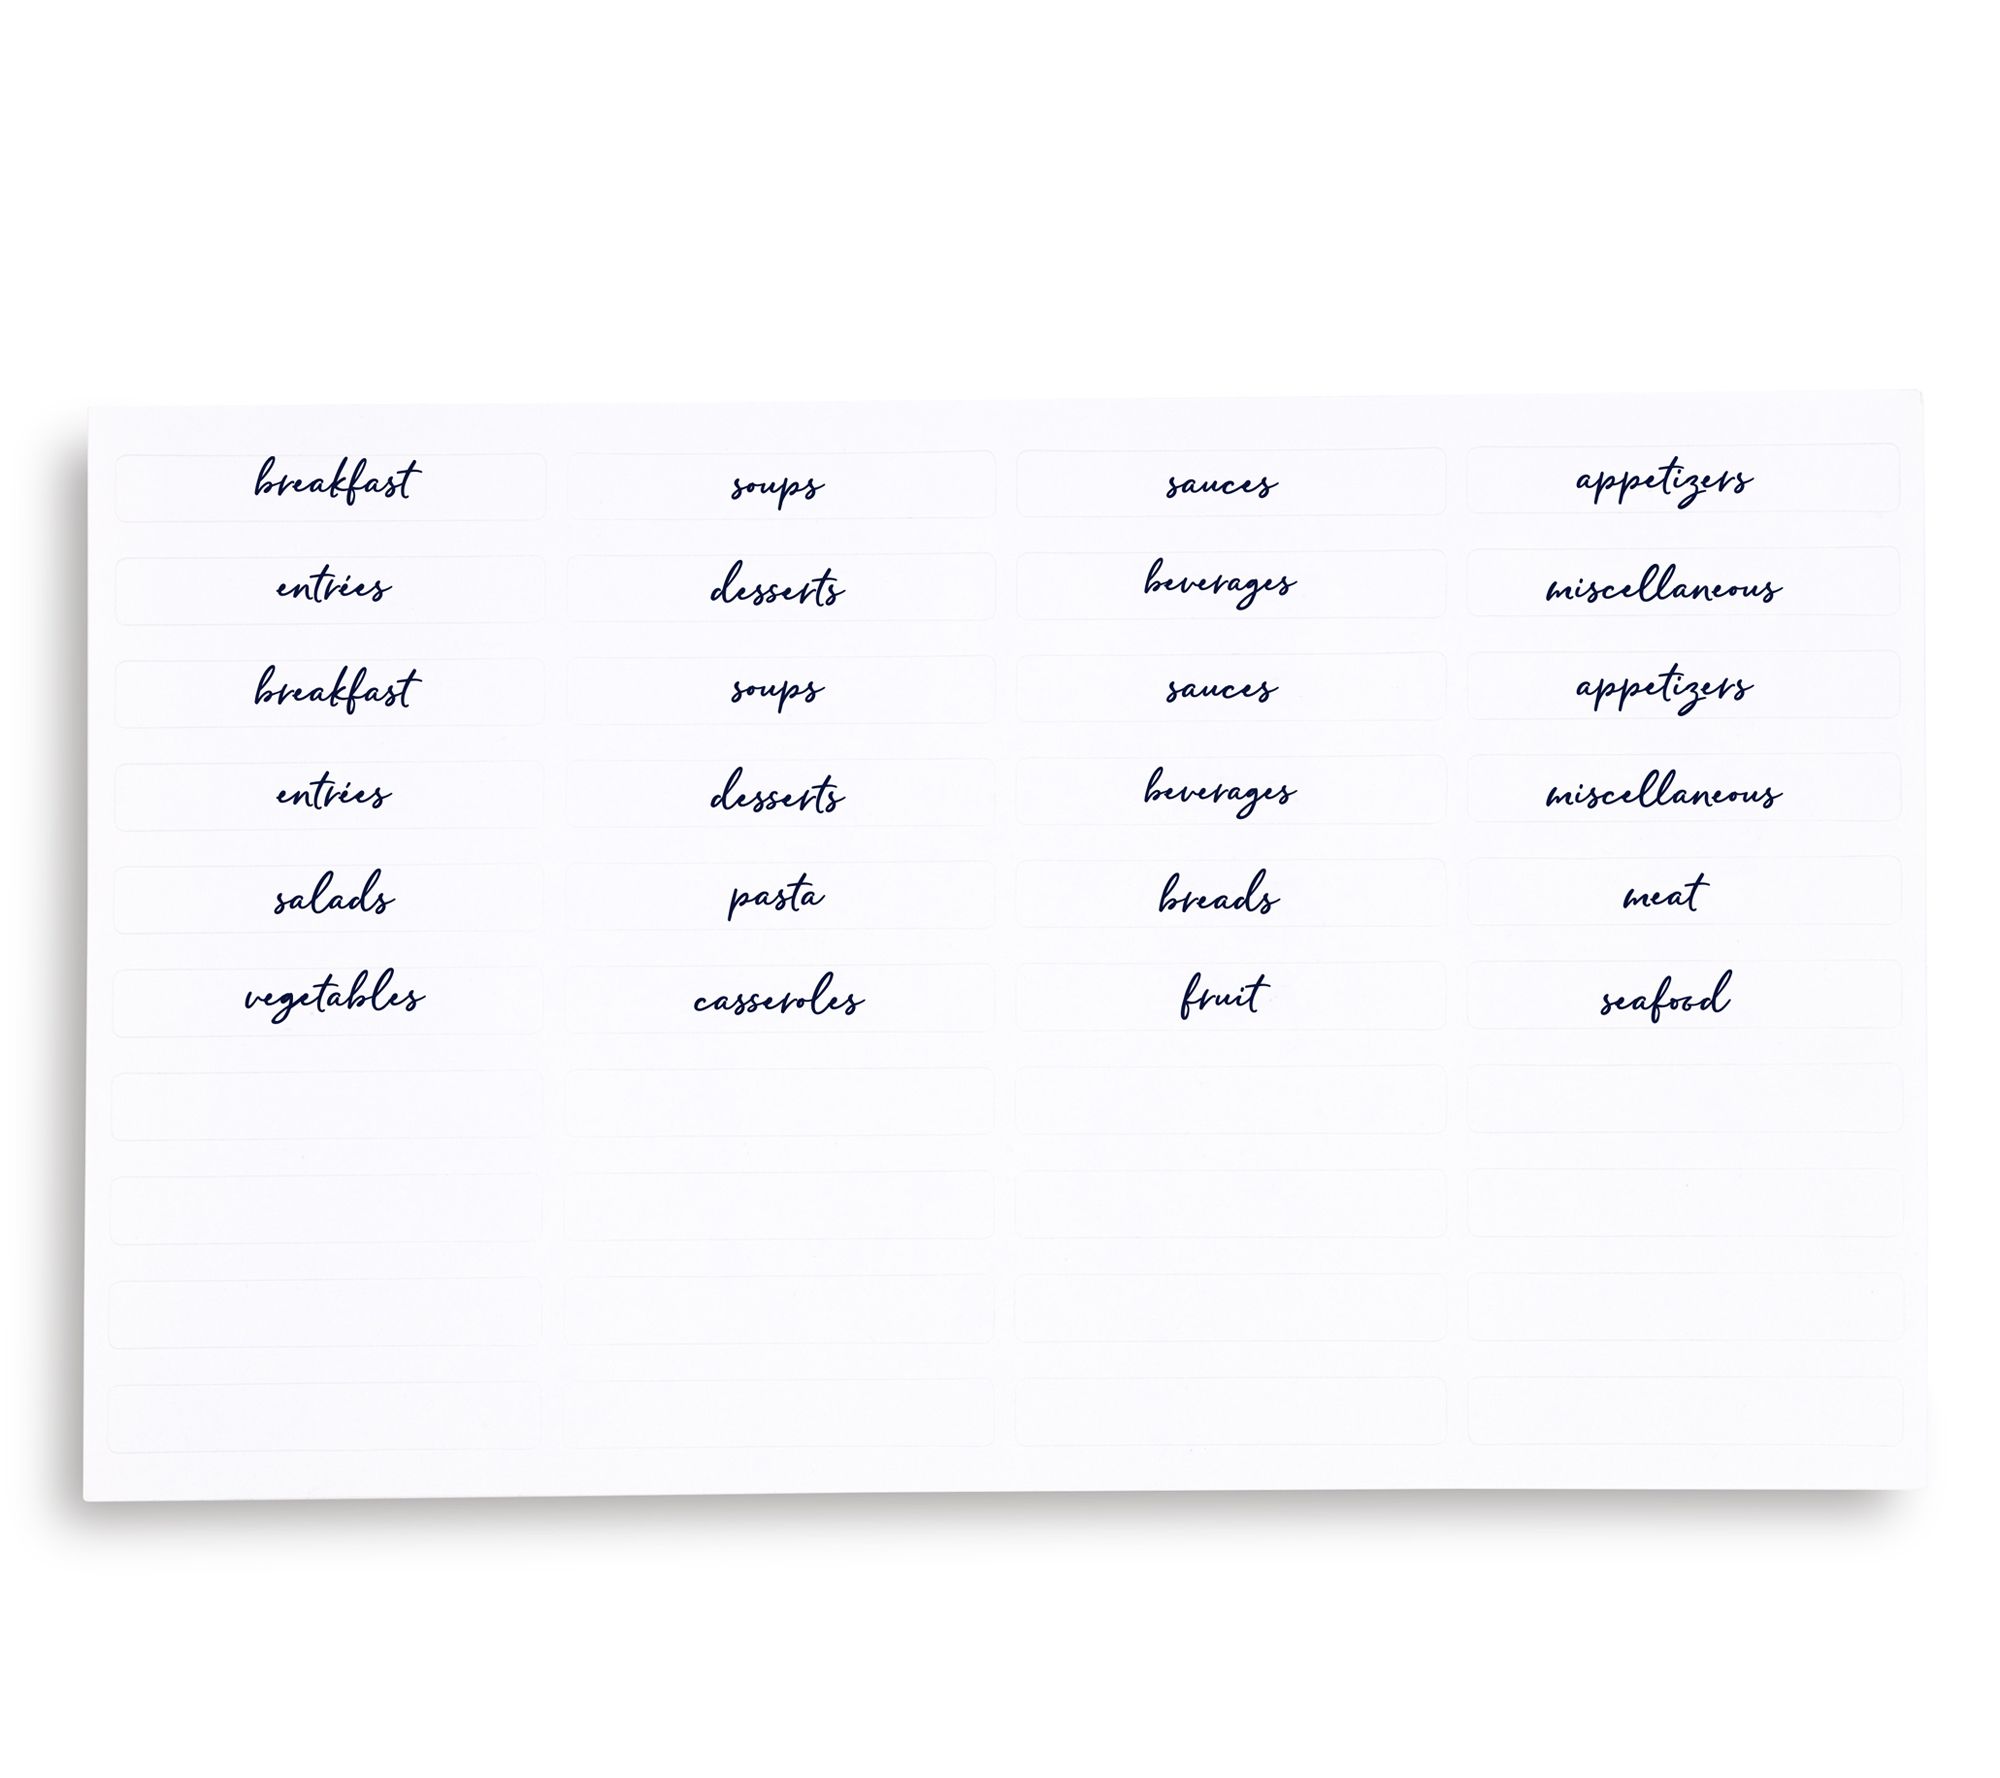 breakfast soups sauces appetizers
entrées desserts beverages miscellaneous
breakfast soups sauces appetizers
entrées desserts beverages miscellaneous
salads pasta breads meat
vegetables casseroles fruit seafood